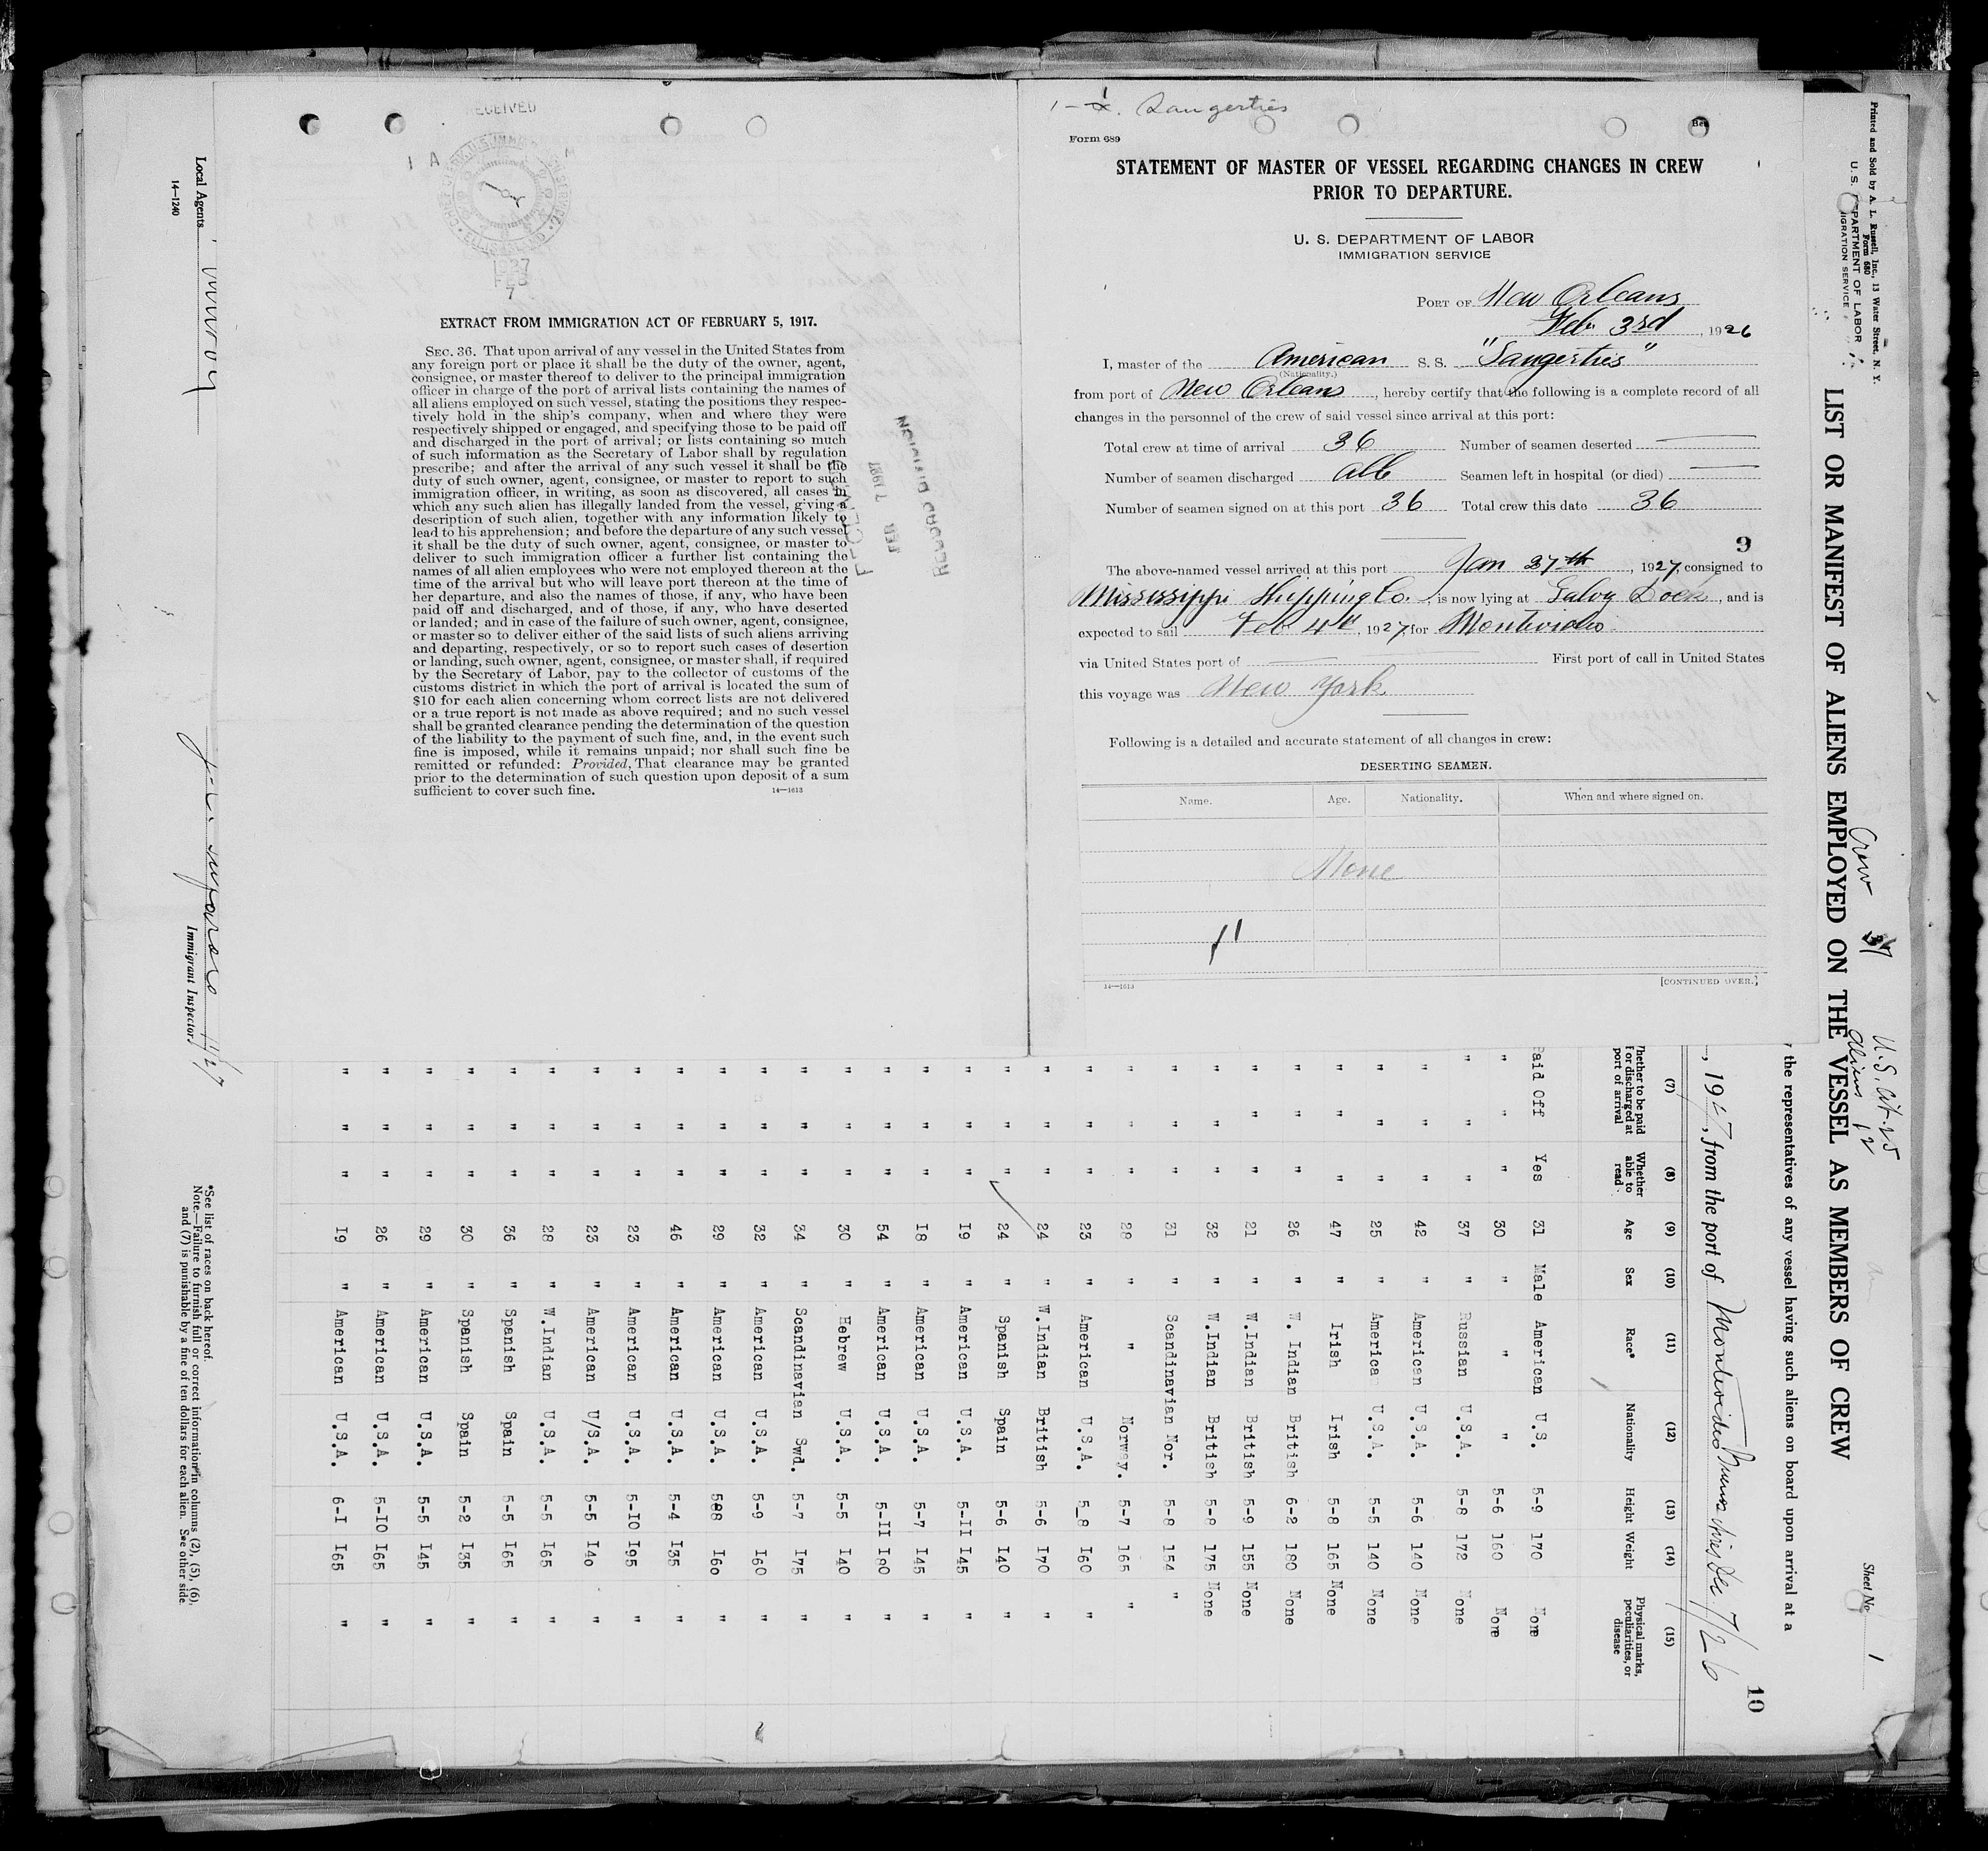 RECEIVED
ELLIS ISLAND
1927
FEB
7
EXTRACT FROM IMMIGRATION ACT OF FEBRUARY 5, 1917.
SEC. 36. That upon arrival of any vessel in the United States from
any foreign port or place it shall be the duty of the owner, agent,
consignee, or master thereof to deliver to the principal immigration
officer in charge of the port of arrival lists containing the names of
all aliens employed on such vessel, stating the positions they respec-
tively hold in the ship's company, when and where they were
respectively shipped or engaged, and specifying those to be paid off
and discharged in the port of arrival; or lists containing so much
of such information as the Secretary of Labor shall by regulation
prescribe; and after the arrival of any such vessel it shall be the
duty of such owner, agent, consignee, or master to report to such
immigration officer, in writing, as soon as discovered, all cases in
which any such alien has illegally landed from the vessel, giving a
description of such alien, together with any information likely to
lead to his apprehension; and before the departure of any such vessel
it shall be the duty of such owner, agent, consignee, or master to
deliver to such immigration officer a further list containing the
names of all alien employees who were not employed thereon at the
time of the arrival but who will leave port thereon at the time of
her departure, and also the names of those, if any, who have been
paid off and discharged, and of those, if any, who have deserted
or landed; and in case of the failure of such owner, agent, consignee,
or master so to deliver either of the said lists of such aliens arriving
and departing, respectively, or so to report such cases of desertion
or landing, such owner, agent, consignee, or master shall, if required
by the Secretary of Labor, pay to the collector of customs of the
customs district in which the port of arrival is located the sum of
$10 for each alien concerning whom correct lists are not delivered
or a true report is not made as above required; and no such vessel
shall be granted clearance pending the determination of the question
of the liability to the payment of such fine, and, in the event such
fine is imposed, while it remains unpaid; nor shall such fine be
remitted or refunded: Provided, That clearance may be granted
prior to the determination of such question upon deposit of a sum
sufficient to cover such fine.
14—1613
RECEIVED
FEB 7 1927
RECORD DIVISION
Saugerties
Form 689
STATEMENT OF MASTER OF VESSEL REGARDING CHANGES IN CREW
PRIOR TO DEPARTURE.
U. S. DEPARTMENT OF LABOR
IMMIGRATION SERVICE
PORT OF New Orleans
Feb. 3rd, 1926
I, master of the American S. S. "Saugerties"
(Nationality.)
from port of New Orleans, hereby certify that the following is a complete record of all
changes in the personnel of the crew of said vessel since arrival at this port:
Total crew at time of arrival 36 Number of seamen deserted
Number of seamen discharged all Seamen left in hospital (or died)
Number of seamen signed on at this port 36 Total crew this date 36
9
The above-named vessel arrived at this port Jan 27th, 1927, consigned to
Mississippi Shipping Co., is now lying at Galvy Dock, and is
expected to sail Feb 4th, 1927, for Montevideo
via United States port of First port of call in United States
this voyage was New York
Following is a detailed and accurate statement of all changes in crew:
DESERTING SEAMEN.
Name. Age. Nationality. When and where signed on.
None
14—1613
[CONTINUED OVER.]
Printed and Sold by A. L. Russell, Inc., 13 Water Street, N. Y.
Form 680
U.S. DEPARTMENT OF LABOR
IMMIGRATION SERVICE
LIST OR MANIFEST OF ALIENS EMPLOYED ON THE VESSEL AS MEMBERS OF CREW
Crew 37
U.S. Cit. 25
Aliens 12
Sheet No. 1
the representatives of any vessel having such aliens on board upon arrival at a
10
, 1927, from the port of Montevideo Buenos Aires Dec 7/26
(7) (8) (9) (10) (11) (12) (13) (14) (15)
Whether to be paid off or discharged at port of arrival Whether able to read Age Sex Race* Nationality Height Weight Physical marks, peculiarities, or disease
Paid Off Yes 31 Male American U.S. 5-9 170 None
" " " 30 " " " 5-6 160 None
" " " 37 " Russian U.S.A. 5-8 172 None
" " " 42 " American U.S.A. 5-6 140 None
" " " 25 " American U.S.A. 5-5 140 None
" " " 47 " Irish Irish 5-8 165 None
" " " 26 " W. Indian British 6-2 180 None
" " " 21 " W.Indian British 5-9 155 None
" " " 32 " W.Indian British 5-8 175 None
" " " 31 " Scandinavian Nor. 5-8 154 "
" " " 28 " " Norway. 5-7 165 "
" " " 23 " American U.S.A. 5_8 I60 "
" " " 24 " W.Indian British 5-6 I70 "
" " " 24 " Spanish Spain 5-6 I40 "
" " " I9 " American U.S.A. 5-II I45 "
" " " I8 " American U.S.A. 5-7 I45 "
" " " 54 " American U.S.A. 5-II I80 "
" " " 30 " Hebrew U.S.A. 5-5 I40 "
" " " 34 " Scandinavian Swd. 5-7 I75 "
" " " 32 " American U.S.A. 5-9 I60 "
" " " 29 " American U.S.A. 5-8 I60 "
" " " 46 " American U.S.A. 5-4 I35 "
" " " 23 " American U.S.A. 5-IO I95 "
" " " 23 " American U/S.A. 5-5 I40 "
" " " 28 " W.Indian U.S.A. 5-5 I65 "
" " " 36 " Spanish Spain 5-5 I65 "
" " " 30 " Spanish Spain 5-2 I35 "
" " " 29 " American U.S.A. 5-5 I45 "
" " " 26 " American U.S.A. 5-IO I65 "
" " " I9 " American U.S.A. 6-I I65 "
Local Agents
14—1240
Immigrant Inspector.
*See list of races on back hereof.
Note.—Failure to furnish full or correct information in columns (2), (5), (6),
and (7) is punishable by a fine of ten dollars for each alien. See other side.